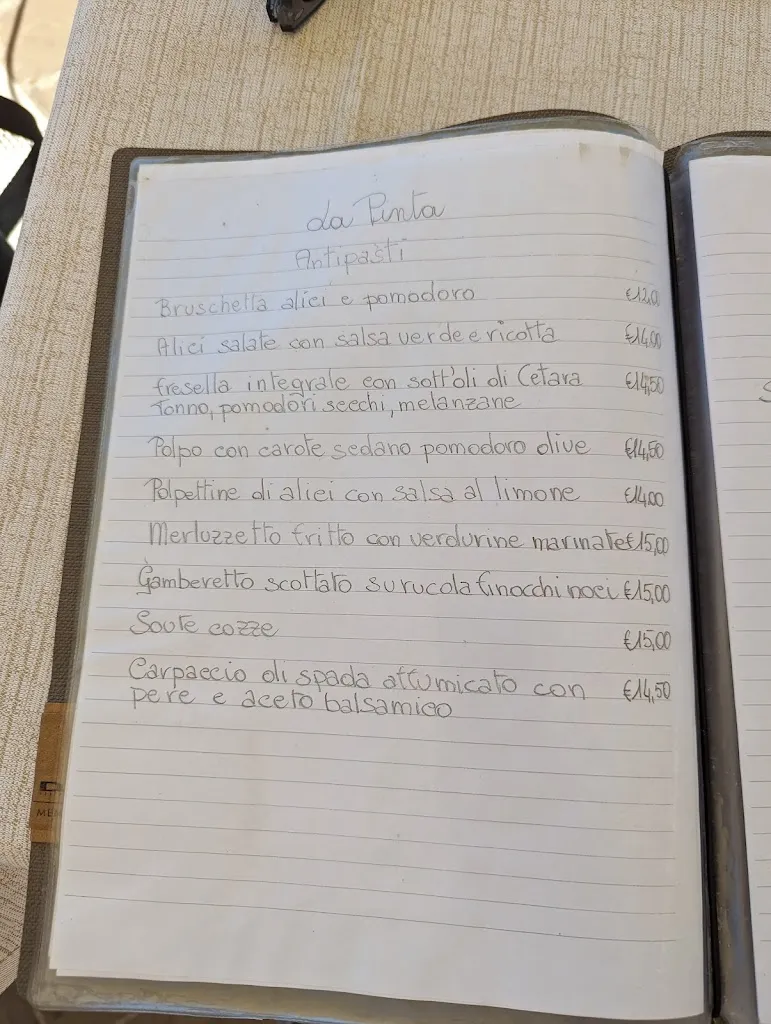 da Pinta
Antipasti
Bruschetta alici e pomodoro €12,0
Alici salate con salsa verde e ricotta €14,00
fresella integrale con sott'oli di Cetara €14,50
Tonno, pomodori secchi, melanzane
Polpo con carote sedano pomodoro olive €14,50
Polpettine di alici con salsa al limone €14,00
Merluzzetto fritto con verdurine marinate €15,00
Gamberetto scottato su rucola finocchi noci €15,00
Soute cozze €15,00
Carpaccio di spada affumicato con €14,50
pere e aceto balsamico